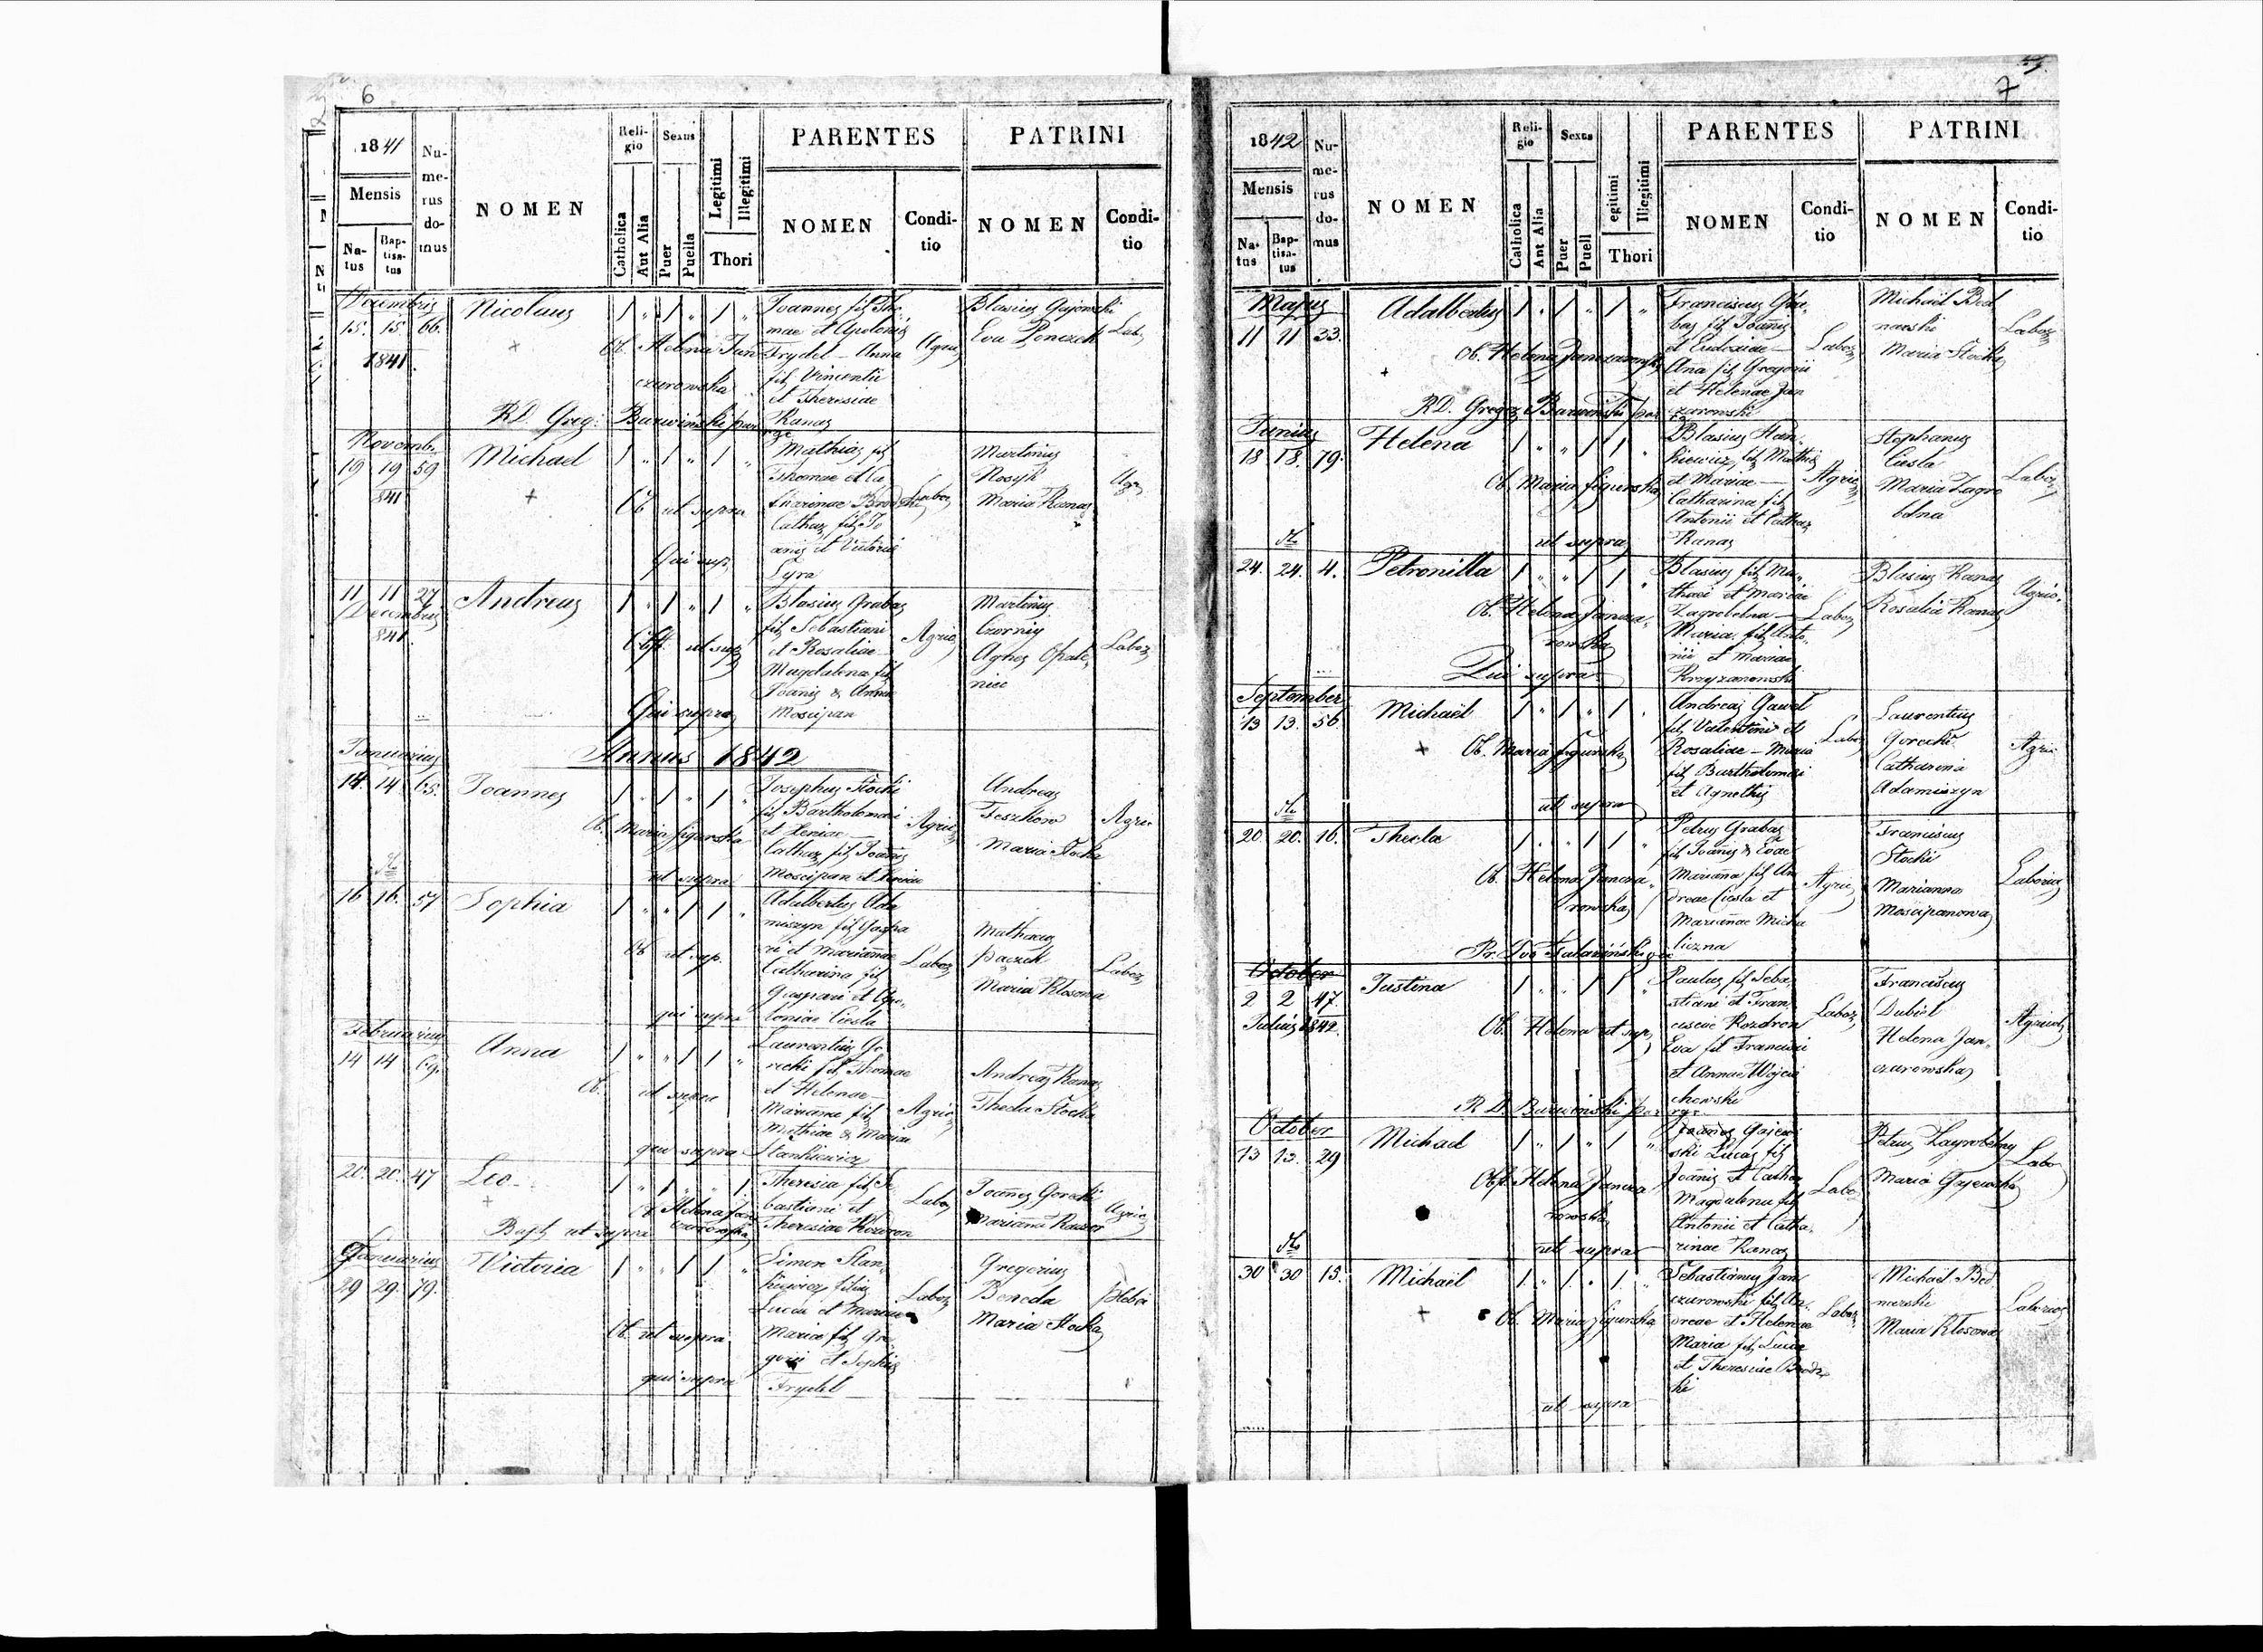 6
1841
Mensis
Na-
tus
Bap-
tisa-
tus
Nu-
me-
rus
do-
mus
NOMEN
Reli-
gio
Catholica
Aut Alia
Sexus
Puer
Puella
Legitimi
Illegitimi
Thori
PARENTES
NOMEN
Condi-
tio
PATRINI
NOMEN
Condi-
tio
15. 15. 66.
1841.
Nicolaus
Ob. Helena Jan
czurowska
RD. Greg: Barwiński
Joannes fil. Tho
mae et Apolonia
Frydel - Anna
fil. Vincentii
et Theresiae
Kanas
Agric
Blasius Gajewski
Eva Penczek
Lab.
Novemb.
19 19 59
841
Michael
Ob ut supra
Qui sup.
Mathias fil
Thomae et Ca
Cathar. fil. Jo
anis et Victoria
Lyra
Labor
Martinus
Nosyk
Maria Kanas
Agr
11 11 27
Decembris
841.
Andreas
Obst. ut sup
Qui supra
Blasius Grabas
fil. Sebastiani
et Rosaliae
Magdalena fil
Joanis & Annae
Moscipan
Agric
Martinus
Czorniy
Agnes Opale
niec
Labor
Annus 1842
Januarius
14. 14 63.
Joannes
Ob. Maria figurska
ut supra
Josephus Stocki
fil Bartholomaei
et Xeniae
Cathar fil Joanis
Moscipan et
Agric
Andreas
Teszkow
Maria Stocka
Agric
16 16. 57
Sophia
Ob ut sup.
qui supra
Adalbertus Ada
miszyn fil Gaspa
ri et Mariannae
Catharina fil
Gaspari et Apo
loniae Ciesla
Labor
Mathaeus
Paczek
Maria Klosowa
Labor
Februarius
14 14 69.
Anna
Ob. ut supra
qui supra
Laurentius Go
recki fil Thomae
et Helenae
Marianna fil
Mathiae & Mariae
Stankiewicz
Agric
Andreas Kanas
Thecla Stocka
20. 20. 47
Leo
Ob Helena Jan
czurowska
Bapt. ut supra
Theresia fil Se
bastiani et
Theresiae
Labor
Joannes Gorecki
Marianna
Agric
Januarius
29 29. 79.
Victoria
Ob. ut supra
qui supra
Simon Stan
kiewicz filius
Lucae et Mariae
Maria fil Gre
gorii et Sophia
Frydel
Labor
Gregorius
Beneda
Maria Stocka
7
1842
Mensis
Na-
tus
Bap-
tisa-
tus
Nu-
me-
rus
do-
mus
NOMEN
Reli-
gio
Catholica
Ant Alia
Sexus
Puer
Puell
egitimi
Illegitimi
Thori
PARENTES
NOMEN
Condi-
tio
PATRINI
NOMEN
Condi-
tio
Majus
11 11 33.
Adalbertus
Ob. Helena Janczurowska
RD. Gregor Barwinski
Franciscus Gra
bas fil Joanis
et Eudoxiae
Ana fil Gregorii
et Helenae Jan
czurowski
Labor
Michaël Bed
narski
Maria Stocka
Labor
Junius
18 18. 79.
Helena
Ob. Maria figurska
ut supra
Blasius Stan
kiewicz fil Mathia
et Mariae
Catharina fil
Antonii et Cathar
Kanas
Agric
Stephanus
Ciesla
Maria Zagro
belna
Labor
24. 24. 4.
Petronilla
Ob. Helena Jancza
rowska
Qui supra
Blasius fil Ma
thaei et Mariae
Zagrobelna
Maria fil Anto
nii et Mariae
Krzyzanowski
Labor
Blasius Kanas
Rosalia Kanas
Agric.
September
13 13. 56
Michaël
Ob. Maria figurska
ut supra
Andreas Gawel
fil Valentini et
Rosaliae - Maria
fil Bartholomaei
et Agnethis
Labor
Laurentius
Gorecki
Catharina
Adamiszyn
Agric
20. 20. 16.
Thecla
Ob. Helena Jancza
rowska
Petrus Grabas
fil Joanis & Evae
Marianna fil An
dreae Ciesla et
Mariannae Micha
liczna
Agric
Franciscus
Stocki
Marianna
Moscipanowa
Laborius
October
2 2 47
Julius 1842.
Justina
Ob. Helena ut sup.
R D. Barwinski
Paulus fil Seba
stiani et Fran
ciscae Kozdron
Eva fil Francisci
et Annae Wojcie
chowski
Labor
Franciscus
Dubiel
Helena Jan
czurowska
Agricol
October
13 13. 29
Michael
Obst. Helena Jancza
rowska
ut supra
Gajew
ski Lucas fil
Joanis et Cathar
Magdalena fil
Antonii et Catha
rinae Kanas
Labo
Petrus Zagrobelny
Maria Gajewska
Labo
30 30 15.
Michaël
Ob. Maria figurska
ut supra
Sebastianus Jan
czurowski fil An
dreae et Helenae
Maria fil Lucae
et Theresiae Brodz
ki
Labor
Michaël Bed
narski
Maria Klosowa
Laborius